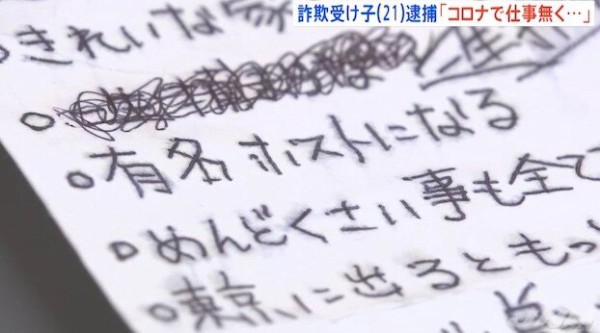 詐欺受け子(21)逮捕「コロナで仕事無く…」
きれいな家
有名ホストになる
めんどくさい事も全て
東京に出るともっ